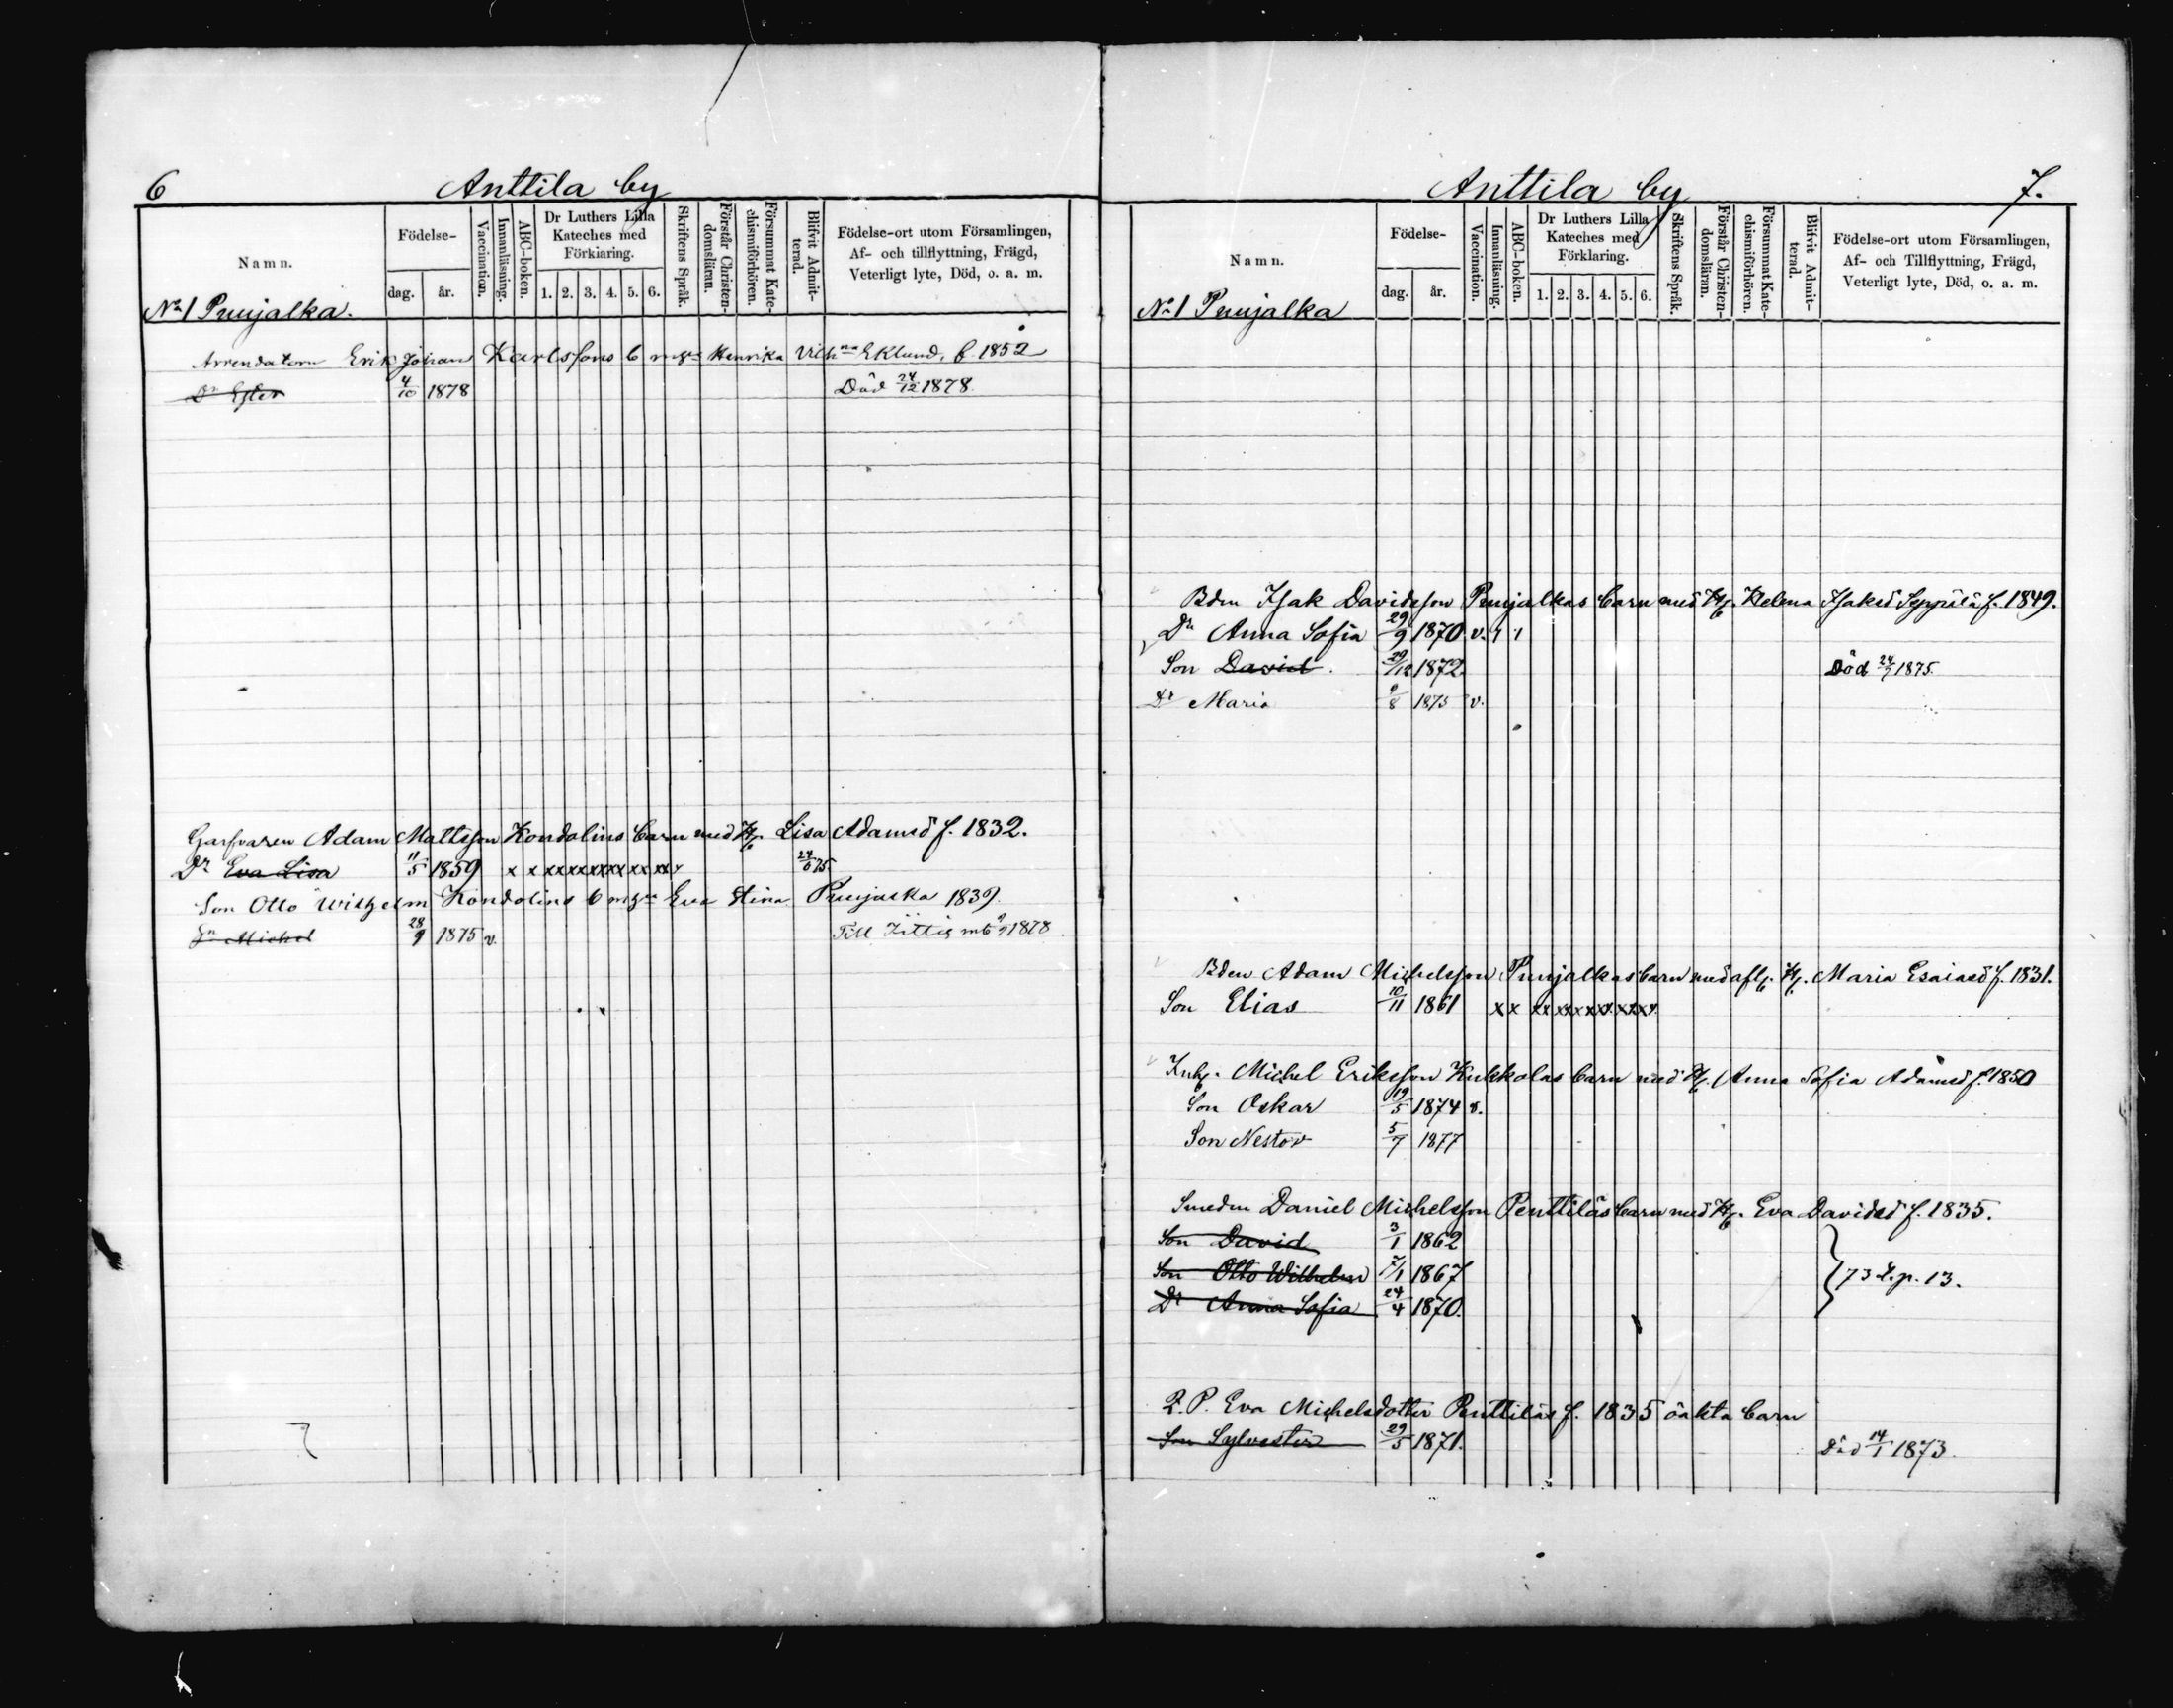 6
Anttila by
Namn.
Födelse-
dag.
år.
Vaccination.
Innanläsning.
ABC-boken.
Dr Luthers Lilla
Kateches med
Förklaring.
1. 2. 3. 4. 5. 6.
Skriftens Språk.
Förstår Christen-
domsläran.
Försummat Kate-
chismiförhören.
Blifvit Admit-
terad.
Födelse-ort utom Församlingen,
Af- och tillflyttning, Frägd,
Veterligt lyte, Död, o. a. m.
No 1 Punjalka.
Arrendatorn Erik Johan Karlssons b m hu Henrika Vilhna Eklund, f. 1852
Dr Ester 4/10 1878 Död 24/12 1878.
Garfvaren Adam Mattsson Kondolins barn med H. Lisa Adamsd f. 1832.
Dr Eva Lisa 11/5 1859 x x xx xx xx xx xx xx x 24/6 75.
Son Otto Wilhelm Kondolins b m hu Eva Stina Punjalka 1839.
Sn Michel 28/9 1875 v. Till Iittis 1878
Anttila by
7.
Namn.
Födelse-
dag.
år.
Vaccination.
Innanläsning.
ABC-boken.
Dr Luthers Lilla
Kateches med
Förklaring.
1. 2. 3. 4. 5. 6.
Skriftens Språk.
Förstår Christen-
domsläran.
Försummat Kate-
chismiförhören.
Blifvit Admit-
terad.
Födelse-ort utom Församlingen,
Af- och Tillflyttning, Frägd,
Veterligt lyte, Död, o. a. m.
No 1 Punjalka
Bdn Isak Davidsson Punjalkas barn med H. Helena Isaksd Seppälä f. 1849.
Dr Anna Sofia 29/9 1870 v. 1 1
Son David. 29/12 1872 Död 24/7 1875.
Dr Maria 9/8 1875 v.
Bden Adam Michelsson Punjalkas barn med afl. H. Maria Esaiasd f. 1831.
Son Elias 10/11 1861 x x xx xx xx xx xx xx
Inh. Michel Eriksson Kukkolas barn med H. Anna Sofia Adamsd f. 1850
Son Oskar 19/5 1874 v.
Son Nestor 5/7 1877
Smeden Daniel Michelsson Penttiläs barn med H. Eva Davidsd f. 1835.
Son David 3/1 1862
Son Otto Wilhelm 7/1 1867
} 73 t. p. 13.
Dr Anna Sofia 24/4 1870.
Q. P. Eva Michelsdotter Penttiläs f. 1835 oäkta barn
Son Sylvester 29/5 1871. Död 14/1 1873.